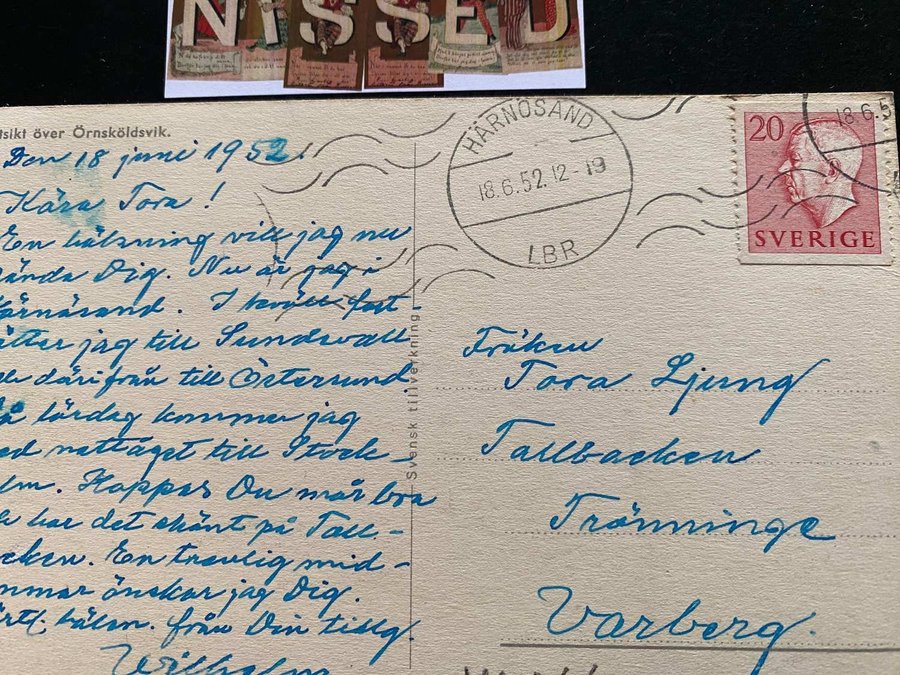 NISSED
tsikt över Örnsköldsvik.
Den 18 juni 1952!
Kära Tora!
En hälsning vill jag nu
ända Dig. Nu är jag i
ärnösand. I kväll fort-
ätter jag till Sundsvall
därifrån till Östersund.
lördag kommer jag
ed nattåget till Stock-
lm. Hoppas Du mår bra
har det skönt på Tall-
cken. En trevlig mid-
mmar önskar jag Dig.
hälsn. från Din tillg.
Wilhelm
Svensk tillverkning
HÄRNÖSAND
18.6.52.12-19
LBR
18.6.5
20
SVERIGE
Fröken
Tora Ljung
Tallbacken
Trönninge
Varberg.